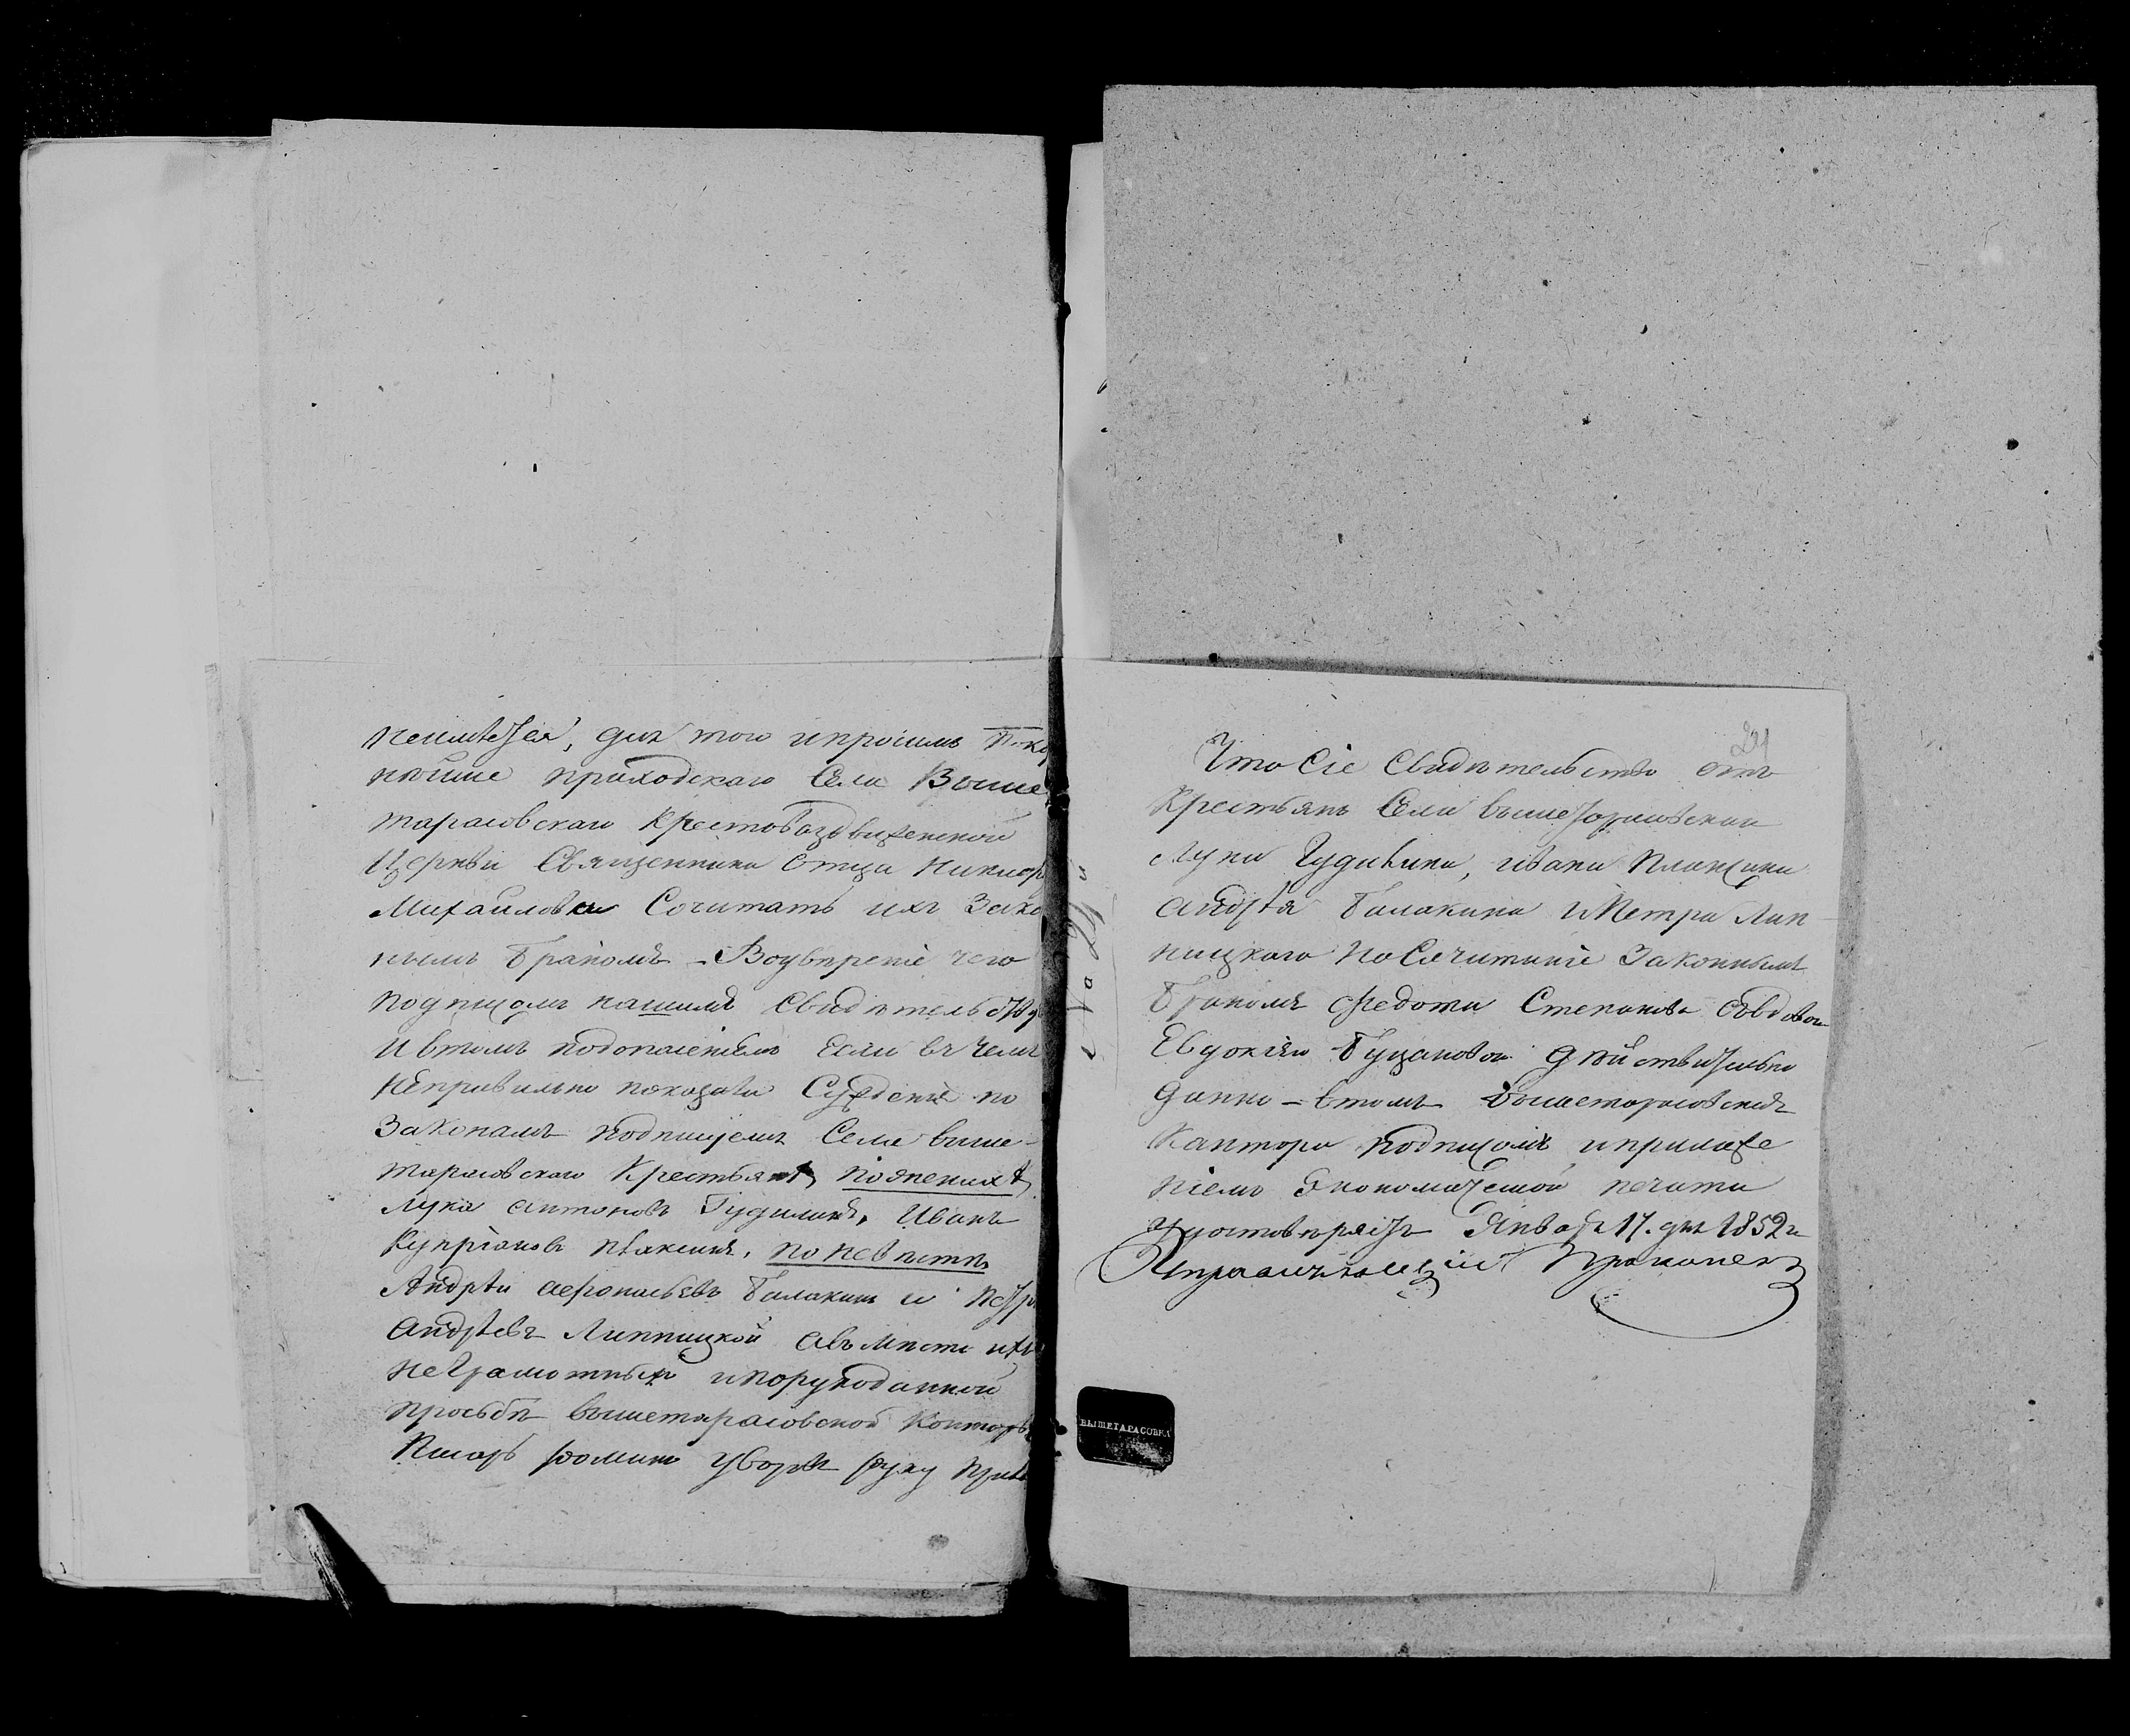 неимеется, для того и просимъ Покор
нейше приходскаго Села Выше
тарасовскаго Крестовоздвиженской
Церкви Священника Отца Никифо
Михайлова Сочитать ихъ Зако
нымъ бракомъ – Воувѣреніе чего
подписомъ нашимъ Свидѣтельству
И втомъ подопасеніемъ Если въ чемъ
Неправильно показали Сужденію по
Законамъ подпишемъ Села выше-
тарасовскаго Крестьянъ, по женихѣ,
Лука Антоновъ Гудилинъ, Иванъ
Купріановъ Плаксинъ, по невѣстѣ,
Андрѣй Афонасьевъ Балакинъ и Петръ
Андрѣевъ Липницкой авъместо ихъ
неграмотныхъ ипорукоданной
просьбѣ вышетарасовской Конторы
Писарь руку
21
Что Сіе Свидѣтельство отъ
Крестьянъ Села вышетарасовскаго
Луки Гудилина, ивана Плаксина
андрѣя Балакина иПетра Лип-
ницкаго На Сочитаніе Законнымъ
бракомъ Федота Степанова съвдовою
Евдокіею Буцановою дѣйствительно
данно – втомъ Вышетарасовская
Кантора подписомъ иприложе
ніемъ Экономической печати
удостовѣряетъ Января 17. дня 1852 г.
ВЫШЕТАРАСОВКА